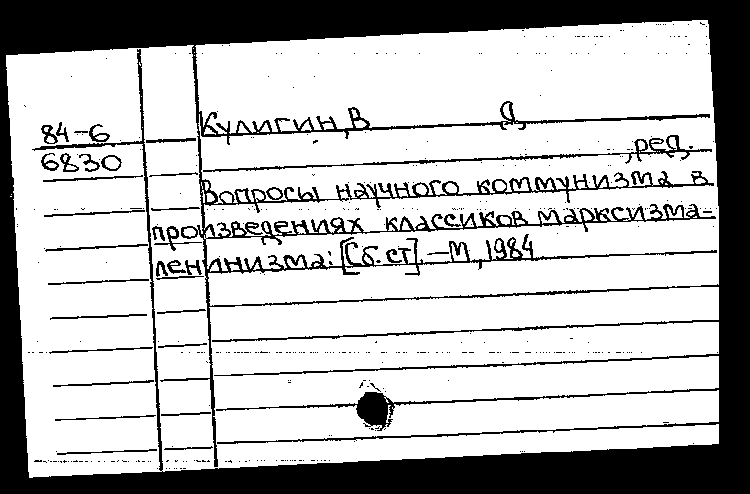 84-6
6830
Кулигин, В Д
, ред.
Вопросы научного коммунизма в
произведениях классиков марксизма-
ленинизма: [Сб. ст]. — М, 1984